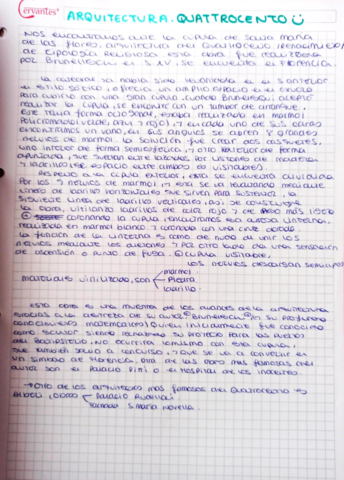 Cervantes
ARQUITECTURA. QUATTROCENTO
NOS encontramos ante la cúpula de Santa María
de las Flores, arquitectura del Quattrocento, Renacimiento,
de tipología religiosa. Esta obra fue realizada
por Brunelleschi en S.XV, se encuentra en Florencia.
La catedral ya había sido levantada en el S. anterior
en estilo gótico, ofrecía un amplio espacio en el crucero
para cubrirlo con una gran cúpula, cuando Brunelleschi aceptó
realizar la cúpula, se encontró con un tambor de arranque,
este tenía forma octogonal, estaba realizado en mármol
policromado (verde, blanco y rojo), y en cada uno de sus caras
encontramos un vano, en sus ángulos se abren 8 grandes
nervios de mármol. La solución fue crear dos casquetes,
uno interior de forma semiesférica, y otro exterior de forma
apuntada, que quedan entrelazados por listones de madera
y ladrillo (ese espacio entre ambos es visitable).
Respecto a la cúpula exterior, esta se encuentra dividida
Por los 8 nervios de mármol, y esta se va levantando mediante
líneas de ladrillo horizontales que sirven para sustentar la
siguiente línea de ladrillo verticales, así se construye
la obra, utilizando ladrillos de color rojo y de peso más ligero
coronando la cúpula, encontramos esa airosa linterna,
realizada en mármol blanco y coronada con una cruz dorada
la función de la linterna es como de nudo de unir los
nervios mediante los aletones y por otro lado da una sensación
de ascensión o punto de fuga. Cúpula visitable,
los nervios descansan semicupos
mármol
materiales utilizados, son Piedra
ladrillo
Esta obra es una muestra de los avances de la arquitectura
gracias a la destreza de su autor Brunelleschi (en su profundo
conocimiento matemático) quien inicialmente fue conocido
como "escultor" siendo rechazado su proyecto para las puertas
del Baptisterio, no ocurriría lo mismo con esta cúpula,
que también salió a concurso, y que se va a convertir en
un símbolo de Florencia. Otra de las obras más famosas del
autor son el Palacio Pitti o el Hospital de los Inocentes.
→ Otro de los arquitectos más famosos del Quattrocento es
Alberti, como Palacio Rucellai
Fachada S. María Novella.